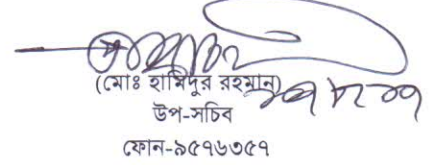 (মোঃ হামিদুর রহমান)
উপ-সচিব
ফোন-৯৫৭৬৩৫৭